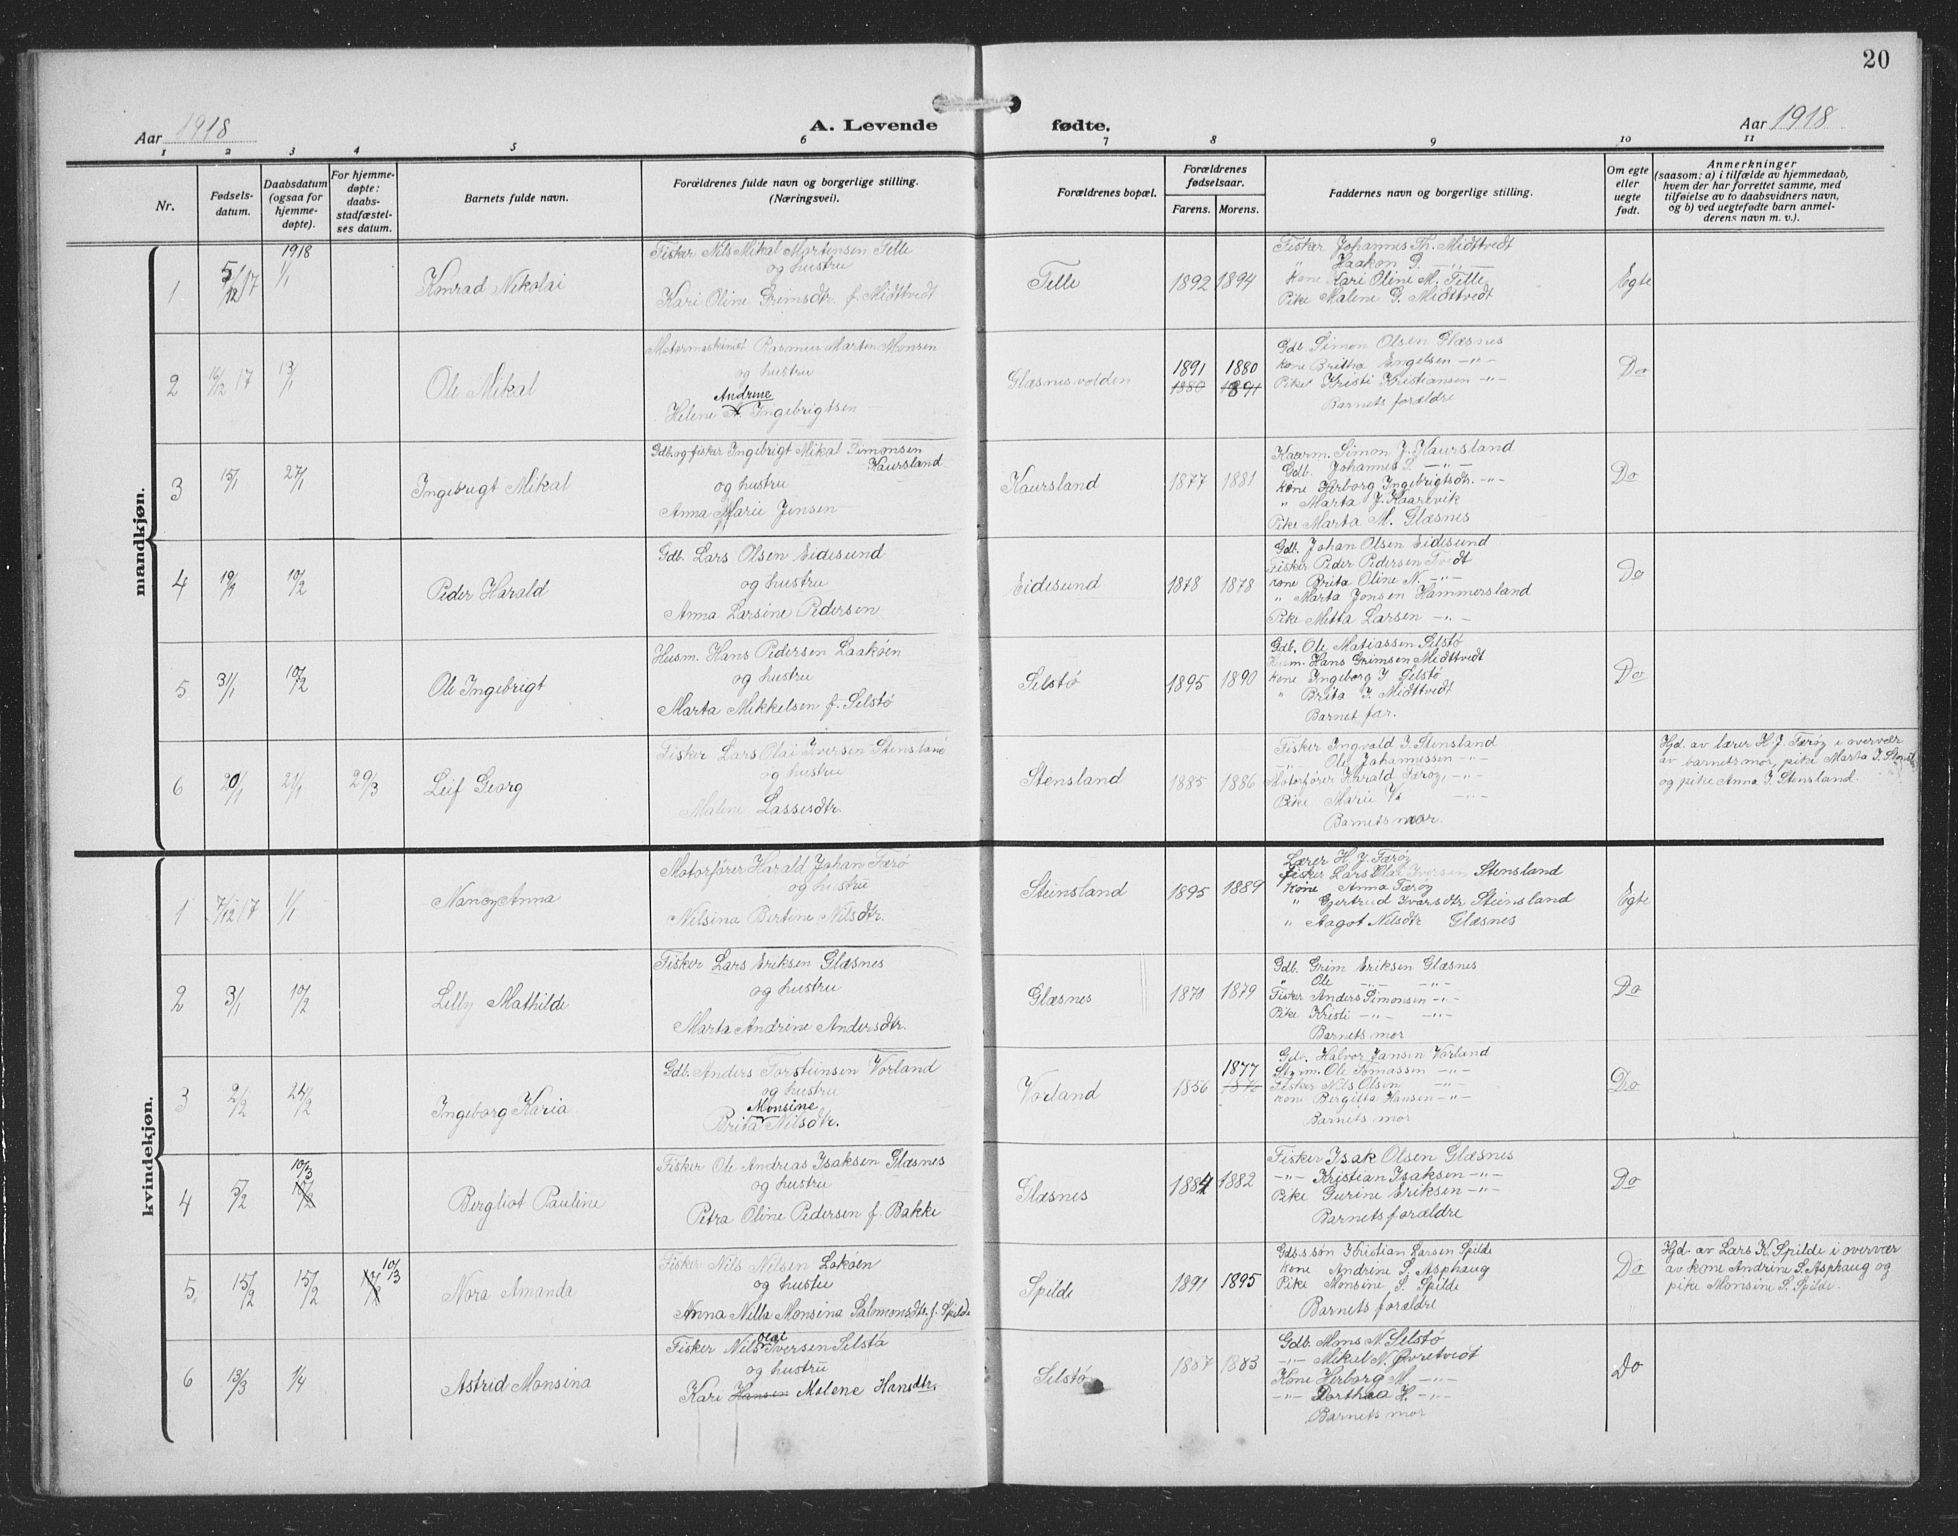 20
Aar 1918
A. Levende fødte.
Aar 1918
1 2 3 4 5 6 7 8 9 10 11
Nr.
Fødsels-
datum.
Daabsdatum
(ogsaa for
hjemme-
døpte).
For hjemme-
døpte:
daabs-
stadfæstel-
ses datum.
Barnets fulde navn.
Forældrenes fulde navn og borgerlige stilling.
(Næringsvei).
Forældrenes bopæl.
Forældrenes
fødselsaar.
Farens. Morens.
Faddernes navn og borgerlige stilling.
Om egte
eller
uegte
født.
Anmerkninger
(saasom: a) i tilfælde av hjemmedaab,
hvem der har forrettet samme, med
tilføielse av to daabsvidners navn,
og b) ved uegtefødte barn anmel-
derens navn m. v.).
mandkjøn.
1 5/12 17 1918 1/1 Konrad Nikolai
Fisker Nils Mikal Martensen Telle
og hustru
Kari Oline Grimsdtr. f. Midttvedt
Telle 1892 1894
Fisker Johannes Th. Midttvedt
" Haakon G. -"-
Kone Kari Oline M. Telle
Pike Malene G. Midttvedt
Egte
2 16/12 17 13/1 Ole Mikal
Motormaskinist Rasmus Martin Monsen
og hustru
Andrine
Helene A. Ingebrigtsen
Glæsnesvolden 1891 1880
1880 1891
Gdb. Simon Olsen Glæsnes
Kone Britha Engelsen -"-
Pike Kristi Kristiansen -"-
Barnets forældre
Do
3 15/1 27/1 Ingebrigt Mikal
Gdb. og fisker Ingebrigt Mikal Simonsen
Kaursland
og hustru
Anna Marie Jensen
Kaursland 1877 1881
Kaarm. Simon J. Kaursland
Gdb. Johannes S. -"-
Kone Herborg Ingebrigtsdtr. -"-
" Marta J. Kaarevik
Pike Marta M. Glæsnes
Do
4 19/1 10/2 Peder Harald
Gdb. Lars Olsen Eidesund
og hustru
Anna Larsine Pedersen
Eidesund 1878 1878
Gdb. Johan Olsen Eidesund
Fisker Peder Pedersen Tvedt
Kone Brita Oline N. -"-
" Marta Jonsen Hammersland
Pike Mitta Larsen -"-
Do
5 31/1 10/2 Ole Ingebrigt
Husm. Hans Pedersen Laakøen
og hustru
Marta Mikkelsen f. Selstø
Selstø 1895 1890
Gdb. Ole Matiassen Selstø
Husm. Hans Grimsen Midttvedt
Kone Ingeborg J. Selstø
" Brita J. Midttvedt
Barnet far.
Do
6 20/1 21/1 29/3 Leif Georg
Fisker Lars Olai Iversen Stensland
og hustru
Malene Lassesdtr.
Stensland 1885 1886
Fisker Ingvald I. Stensland
-"- Ole Johannessen -"-
Motorfører Harald Færøy -"-
Pike Marie -"-
Barnets mor.
Hjd. av lærer H. J. Færøy i overvær
av barnets mor, pike Marta I. Stensl.
og pike Anna I. Stensland.
kvindekjøn.
1 7/12 17 1/1 Nancy Anna
Motorfører Harald Johan Færø
og hustru
Nilsina Bertine Nilsdtr.
Steinsland 1895 1889
Lærer H. J. Færøy
Fisker Lars Olai Iversen Stensland
Kone Anna Færøy
" Gjertrud Ivarsdtr Steinsland
" Aagot Nilsdtr Glæsnes
Egte
2 3/1 10/2 Lilly Mathilde
Fisker Lars Eriksen Glæsnes
og hustru
Marta Andrine Andersdtr.
Glæsnes 1870 1879
Gdb. Grim Eriksen Glæsnes
" Ole -"- -"-
Fisker Anders Simonsen -"-
Pike Kristi -"- -"-
Barnets mor
Do
3 2/2 24/2 Ingeborg Karia
Gdb. Anders Torsteinsen Vorland
og hustru
Monsine
Brita Nilsdtr.
Vorland 1856 1877
Gdb. Halvor Jansen Vorland
Ole Tomassen -"-
Fisker Nils Olsen -"-
Kone Bergitta Hansen -"-
Barnets mor
Do
4 5/2 10/3 Bergliot Pauline
Fisker Ole Andreas Isaksen Glæsnes
og hustru
Petra Oline Pedersen f. Bakke
Glæsnes 1884 1882
Fisker Isak Olsen Glæsnes
-"- Kristian Isaksen -"-
Pike Gurine Eriksen -"-
Barnets forældre
Do
5 15/2 15/2 10/3 Nora Amanda
Fisker Nils Nilsen Lokøen
og hustru
Anna Nilla Monsina Salomonsdtr. f. Spilde
Spilde 1891 1895
Gdb.s søn Kristian Larsen Spilde
Kone Andrine S. Asphaug
Pike Monsine S. Spilde
Barnets forældre
Do
Hjd. av Lars K. Spilde i overvær
av kone Andrine S. Asphaug og
pike Monsine S. Spilde.
6 13/3 1/4 Astrid Monsina
Olai
Fisker Nils Iversen Selstø
og hustru
Kari Hansen Malene Hansdtr.
Selstø 1887 1883
Gdb. Mons N. Selstø
-"- Mikal N. Øvretvedt
Kone Herborg M. -"-
-"- Dorthea H. -"-
Barnets mor
Do